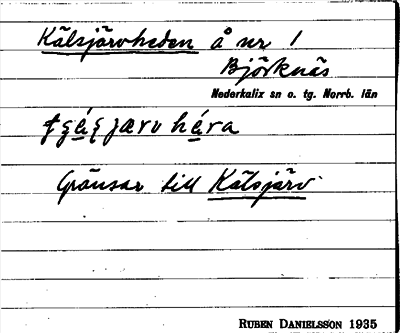 Kälsjärvheden å nr 1
Björknäs
Nederkalix sn o. tg. Norrb. län
jærv hé̱ra
Gränsar till Kälsjärv
RUBEN DANIELSSON 1935